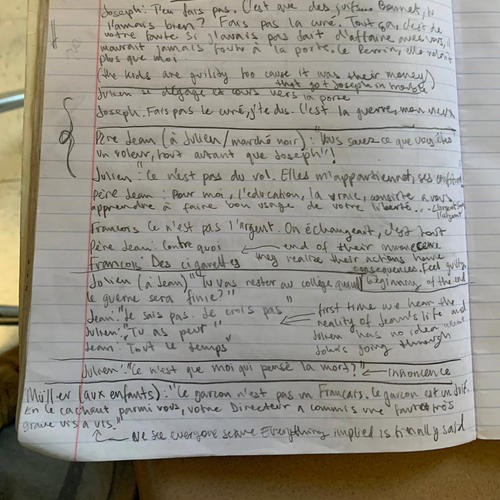 Joseph: T'en fais pas. C'est que des juifs... Bonnet, tu
l'aimais bien? Fais pas la curé. Tout ça, c'est de
votre faute. Si j'avais pas fait d'affaire avec vous, il
m'aurait jamais foutu à la porte. Le Perrin, elle volait
plus que moi.
(the kids are guility too cause it was their money)
that got Joseph in trouble
Julien se dégage et cours vers la porte
Joseph: Fais pas le curé, j'te dis. C'est la guerre, mon vieux
Père Jean (à Julien/marché noir): "Vous savez ce que vous êtes
un voleur, tout autant que Joseph"!
Julien: Ce n'est pas du vol. Elles m'appartiennent, ses confitures
Père Jean: Pour moi, l'éducation, la vraie, consiste à vous
apprendre à faire bon usage de votre liberté...
l'argent
Francois Ce n'est pas l'argent. On échangeait, c'est tout
Père Jean: Contre quoi ← end of their innocence
Francois: Des cigarettes they realize their actions have
consequences. Feel guilty
Julien (à Jean) "Tu vas rester au collège quand beginning of the end
le guerre sera finie?"
Jean: "Je sais pas. Je crois pas" ← first time we hear the
Julien: "Tu as peur" reality of Jean's life and
Julien has no idea what
Jean: Tout le temps" Jean's going through
Julien: "Ce n'est que moi qui pense la mort?" ← Innoncence
Müller (aux enfants): "Ce garçon n'est pas un Français. Le garçon est un Juif.
En le cachant parmi vous, votre Directeur a commis une faute très
grave vis à vis."
← We see everyone scare Everything implied is finally said